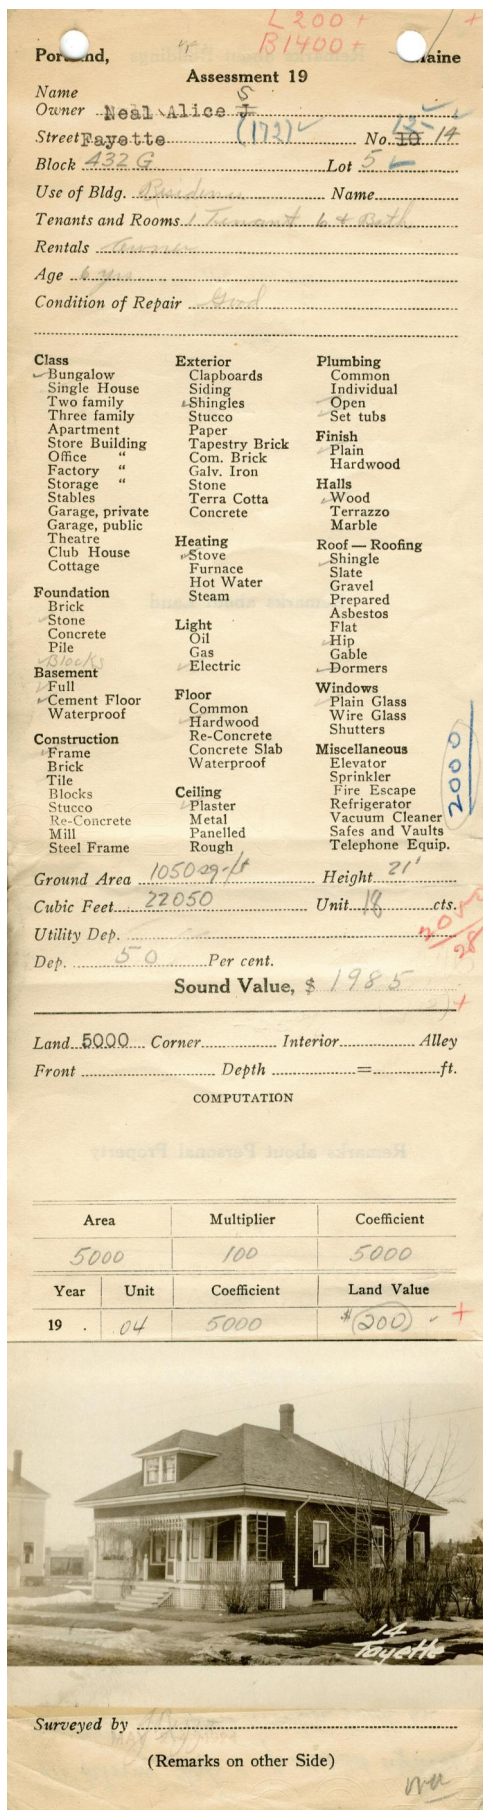 L 200 +
B 1400 +
+
Portland, Maine
Assessment 19
Name
Owner Neal Alice J S
Street Fayette (172) No. 10 12- 14
Block 432 G Lot 5
Use of Bldg. Residence Name
Tenants and Rooms 1 Tenant 6 & Bath
Rentals Owner
Age 6 yrs
Condition of Repair Good
Class
Bungalow
Single House
Two family
Three family
Apartment
Store Building
Office "
Factory "
Storage "
Stables
Garage, private
Garage, public
Theatre
Club House
Cottage
Foundation
Brick
Stone
Concrete
Pile
Blocks
Basement
Full
Cement Floor
Waterproof
Construction
Frame
Brick
Tile
Blocks
Stucco
Re-Concrete
Mill
Steel Frame
Exterior
Clapboards
Siding
Shingles
Stucco
Paper
Tapestry Brick
Com. Brick
Galv. Iron
Stone
Terra Cotta
Concrete
Heating
Stove
Furnace
Hot Water
Steam
Light
Oil
Gas
Electric
Floor
Common
Hardwood
Re-Concrete
Concrete Slab
Waterproof
Ceiling
Plaster
Metal
Panelled
Rough
Plumbing
Common
Individual
Open
Set tubs
Finish
Plain
Hardwood
Halls
Wood
Terrazzo
Marble
Roof — Roofing
Shingle
Slate
Gravel
Prepared
Asbestos
Flat
Hip
Gable
Dormers
Windows
Plain Glass
Wire Glass
Shutters
Miscellaneous
Elevator
Sprinkler
Fire Escape
Refrigerator
Vacuum Cleaner
Safes and Vaults
Telephone Equip.
2000
Ground Area 1050 sq-ft Height 21'
Cubic Feet 22050 Unit 18 cts.
Utility Dep.
Dep. 50 Per cent.
Sound Value, $ 1985
+
Land 5000 Corner Interior Alley
Front Depth = ft.
COMPUTATION
Remarks about Personal Property
Area Multiplier Coefficient
5000 100 5000
Year Unit Coefficient Land Value
19 . 04 5000 $ (200) +
14
Fayette
Surveyed by
(Remarks on other Side)